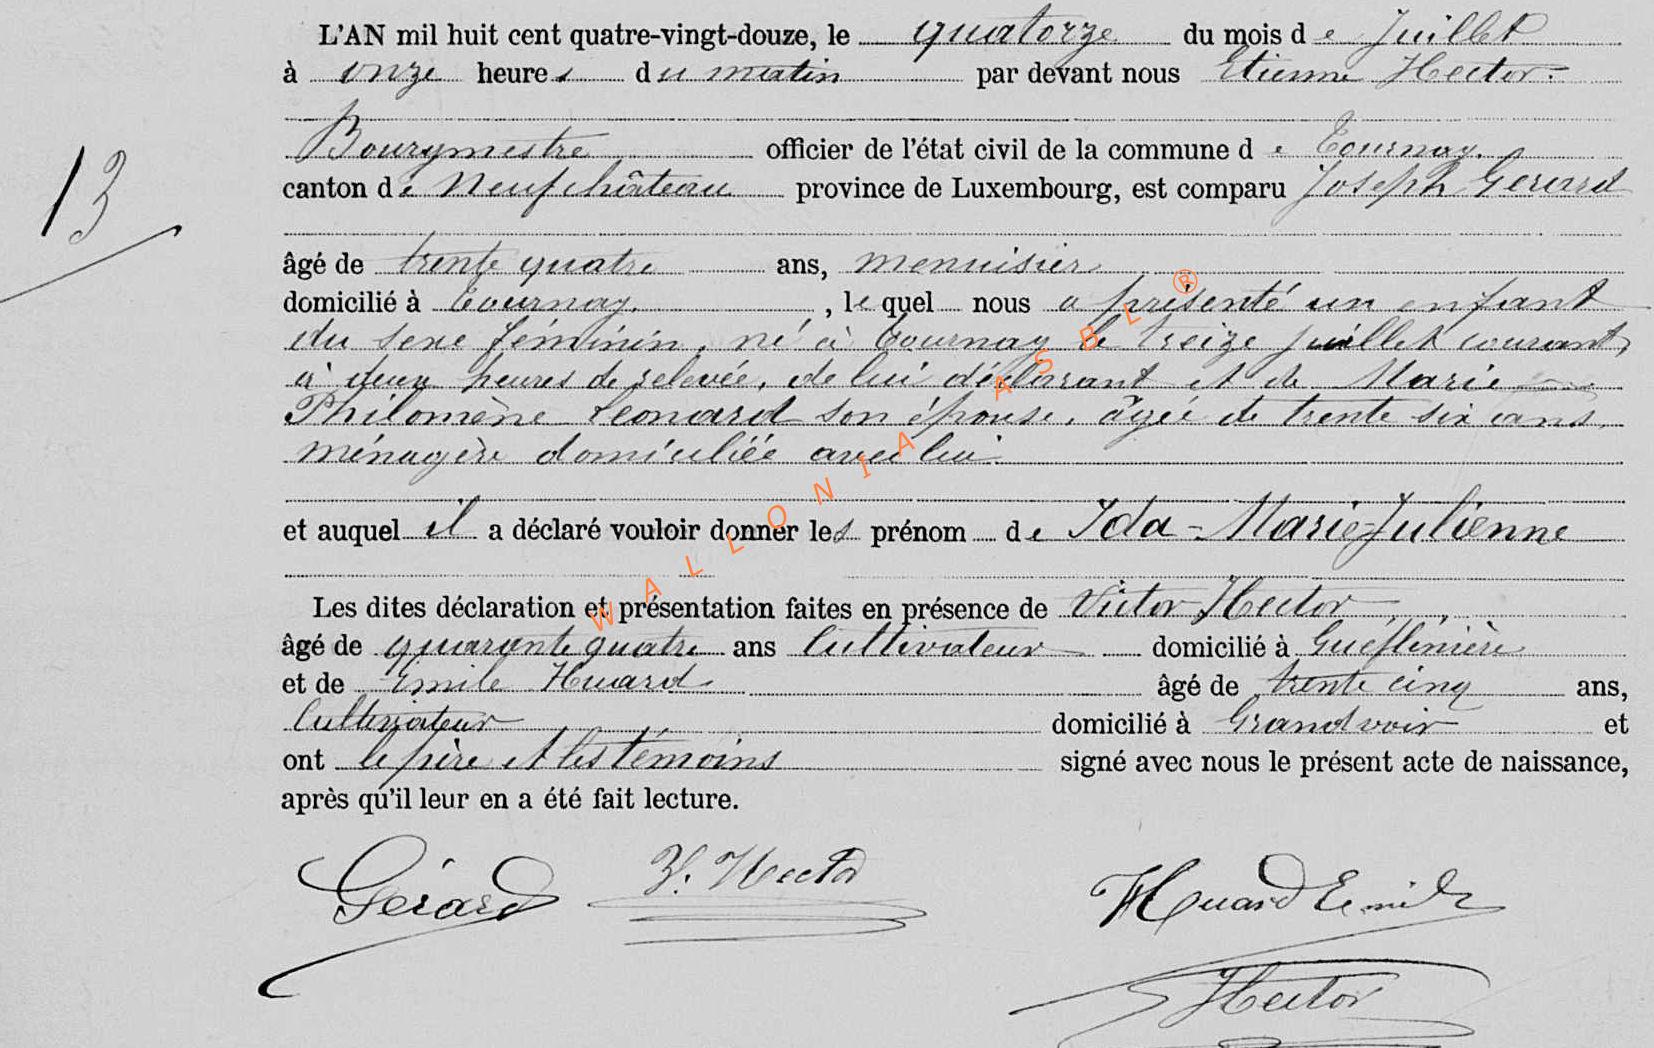 L'AN mil huit cent quatre-vingt-douze, le quatorze du mois de Juillet
à onze heures du matin par devant nous Etienne Hector
Bourgmestre officier de l'état civil de la commune de Tournay.
13
canton de Neufchâteau province de Luxembourg, est comparu Joseph Gerard
âgé de trente quatre ans, menuisier
domicilié à Tournay, lequel nous a présenté un enfant
du sexe féminin, né à Tournay le treize juillet courant,
à deux heures de relevée, de lui déclarant et de Marie
Philomène Leonard son épouse, âgée de trente six ans,
ménagère domiciliée avec lui
et auquel il a déclaré vouloir donner les prénom de Ida-Marie-Julienne
Les dites déclaration et présentation faites en présence de Victor Hector
âgé de quarante quatre ans Cultivateur domicilié à
et de Emile Huard âgé de trente cinq ans,
Cultivateur domicilié à Grandvoir et
ont le père et les témoins signé avec nous le présent acte de naissance,
après qu'il leur en a été fait lecture.
Gérard V. Hector Huard Emile
Hector
WALLONIA ASBL ®